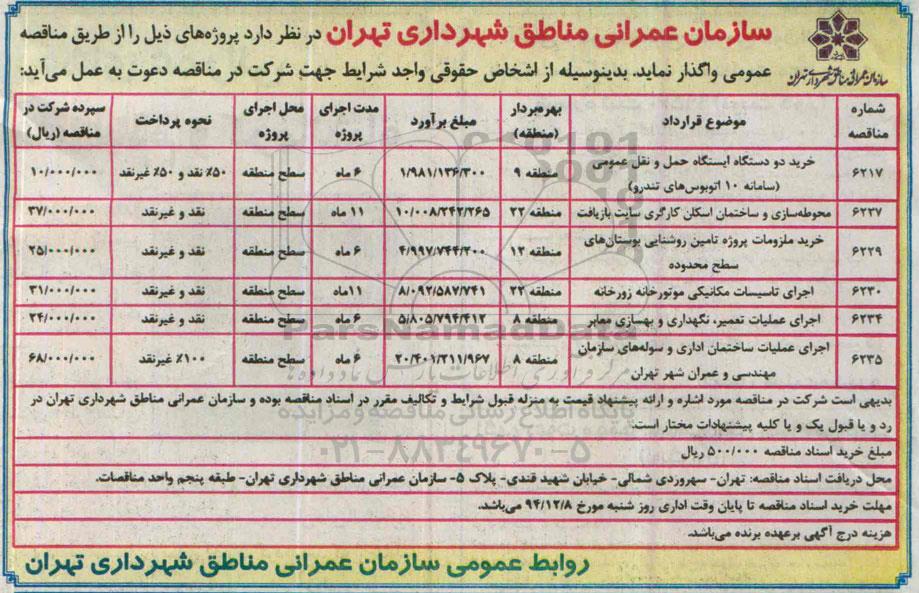 سازمان عمرانی مناطق شهرداری تهران در نظر دارد پروژه‌های ذیل را از طریق مناقصه
عمومی واگذار نماید. بدینوسیله از اشخاص حقوقی واجد شرایط جهت شرکت در مناقصه دعوت به عمل می‌آید:
سازمان عمرانی مناطق شهرداری تهران
شماره مناقصه | موضوع قرارداد | بهره‌بردار (منطقه) | مبلغ برآورد | مدت اجرای پروژه | محل اجرای پروژه | نحوه پرداخت | سپرده شرکت در مناقصه (ریال)
۶۲۱۷ | خرید دو دستگاه ایستگاه حمل و نقل عمومی (سامانه ۱۰ اتوبوس‌های تندرو) | منطقه ۹ | ۱/۹۸۱/۱۳۶/۳۰۰ | ۶ ماه | سطح منطقه | ۵۰٪ نقد و ۵۰٪ غیرنقد | ۱۰/۰۰۰/۰۰۰
۶۲۳۷ | محوطه‌سازی و ساختمان اسکان کارگری سایت بازیافت | منطقه ۲۲ | ۱۰/۰۰۸/۲۴۲/۲۶۵ | ۱۱ ماه | سطح منطقه | نقد و غیرنقد | ۳۷/۰۰۰/۰۰۰
۶۲۲۹ | خرید ملزومات پروژه تامین روشنایی بوستان‌های سطح محدوده | منطقه ۱۳ | ۴/۹۹۷/۷۴۴/۳۰۰ | ۶ ماه | سطح منطقه | نقد و غیرنقد | ۲۵/۰۰۰/۰۰۰
۶۲۳۰ | اجرای تاسیسات مکانیکی موتورخانه زورخانه | منطقه ۲۲ | ۸/۰۹۲/۵۸۷/۷۴۱ | ۱۱ماه | سطح منطقه | نقد و غیرنقد | ۳۱/۰۰۰/۰۰۰
۶۲۳۴ | اجرای عملیات تعمیر، نگهداری و بهسازی معابر | منطقه ۸ | ۵/۸۰۵/۷۹۴/۴۱۲ | ۶ ماه | سطح منطقه | نقد و غیرنقد | ۲۴/۰۰۰/۰۰۰
۶۲۳۵ | اجرای عملیات ساختمان اداری و سوله‌های سازمان مهندسی و عمران شهر تهران | منطقه ۸ | ۲۰/۴۰۱/۲۱۱/۹۶۷ | ۶ ماه | سطح منطقه | ۱۰۰٪ غیرنقد | ۶۸/۰۰۰/۰۰۰
بدیهی است شرکت در مناقصه مورد اشاره و ارائه پیشنهاد قیمت به منزله قبول شرایط و تکالیف مقرر در اسناد مناقصه بوده و سازمان عمرانی مناطق شهرداری تهران در
رد و یا قبول یک و یا کلیه پیشنهادات مختار است.
مبلغ خرید اسناد مناقصه ۵۰۰/۰۰۰ ریال
محل دریافت اسناد مناقصه: تهران- سهروردی شمالی- خیابان شهید قندی- پلاک ۵- سازمان عمرانی مناطق شهرداری تهران- طبقه پنجم واحد مناقصات.
مهلت خرید اسناد مناقصه تا پایان وقت اداری روز شنبه مورخ ۹۴/۱۲/۸ می‌باشد.
هزینه درج آگهی برعهده برنده می‌باشد.
روابط عمومی سازمان عمرانی مناطق شهرداری تهران
ParsNamadData
پایگاه اطلاع رسانی مناقصه و مزایده
۰۲۱-۸۸۳۴۹۶۷۰-۵